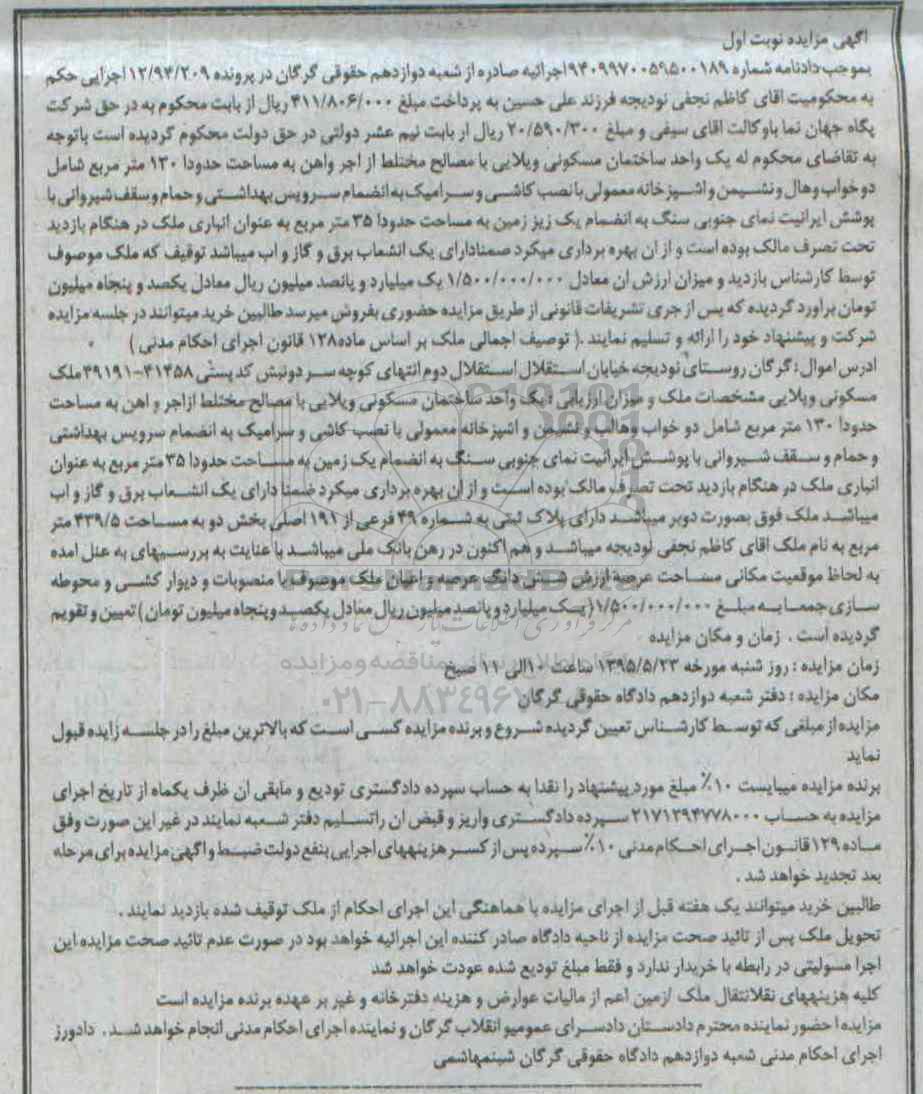 اگهی مزایده نوبت اول
بموجب دادنامه شماره ۹۴۰۹۹۷۰۰۵۹۵۰۰۱۸۹ اجرائیه صادره از شعبه دوازدهم حقوقی گرگان در پرونده ۱۲/۹۴/۲۰۹ اجرایی حکم
به محکومیت اقای کاظم نجفی نودیجه فرزند علی حسین به پرداخت مبلغ ۴۱۱/۸۰۶/۰۰۰ ریال از بابت محکوم به در حق شرکت
پگاه جهان نما باوکالت اقای سیفی و مبلغ ۲۰/۵۹۰/۳۰۰ ریال از بابت نیم عشر دولتی در حق دولت محکوم گردیده است باتوجه
به تقاضای محکوم له یک واحد ساختمان مسکونی ویلایی با مصالح مختلط از اجر واهن به مساحت حدودا ۱۳۰ متر مربع شامل
دو خواب وهال و نشیمن و اشپزخانه معمولی با نصب کاشی و سرامیک به انضمام سرویس بهداشتی و حمام و سقف شیروانی با
پوشش ایرانیت نمای جنوبی سنگ به انضمام یک زیز زمین به مساحت حدودا ۳۵ متر مربع به عنوان انباری ملک در هنگام بازدید
تحت تصرف مالک بوده است و از ان بهره برداری میکرد ضمنادارای یک انشعاب برق و گاز و اب میباشد توقیف که ملک موصوف
توسط کارشناس بازدید و میزان ارزش ان معادل ۱/۵۰۰/۰۰۰/۰۰۰ یک میلیارد و پانصد میلیون ریال معادل یکصد و پنجاه میلیون
تومان براورد گردیده که پس از جری تشریفات قانونی از طریق مزایده حضوری بفروش میرسد طالبین خرید میتوانند در جلسه مزایده
شرکت و پیشنهاد خود را ارائه و تسلیم نمایند .( توصیف اجمالی ملک بر اساس ماده۱۲۸ قانون اجرای احکام مدنی )
ادرس اموال : گرگان روستای نودیجه خیابان استقلال استقلال دوم انتهای کوچه سر دونبش کد پستی ۴۱۴۵۸-۴۹۱۹۱ ملک
مسکونی ویلایی مشخصات ملک و میزان ارزیابی : یک واحد ساختمان مسکونی ویلایی با مصالح مختلط ازاجر و اهن به مساحت
حدودا ۱۳۰ متر مربع شامل دو خواب وهال و نشیمن و اشپزخانه معمولی با نصب کاشی و سرامیک به انضمام سرویس بهداشتی
و حمام و سقف شیروانی با پوشش ایرانیت نمای جنوبی سنگ به انضمام یک زمین به مساحت حدودا ۳۵ متر مربع به عنوان
انباری ملک در هنگام بازدید تحت تصرف مالک بوده است و از ان بهره برداری میکرد ضمنا دارای یک انشعاب برق و گاز و اب
میباشد ملک فوق بصورت دوبر میباشد دارای پلاک ثبتی به شماره ۴۹ فرعی از ۱۹۱ اصلی بخش دو به مساحت ۴۳۹/۵ متر
مربع به نام ملک اقای کاظم نجفی نودیجه میباشد و هم اکنون در رهن بانک ملی میباشد با عنایت به بررسیهای به عمل امده
به لحاظ موقعیت مکانی مساحت عرصه ارزش شش دانگ عرصه و اعیان ملک موصوف با منصوبات و دیوار کشی و محوطه
سازی جمعا به مبلغ ۱/۵۰۰/۰۰۰/۰۰۰( یک میلیارد و پانصد میلیون ریال معادل یکصد و پنجاه میلیون تومان ) تعیین و تقویم
گردیده است . زمان و مکان مزایده
زمان مزایده : روز شنبه مورخه ۱۳۹۵/۵/۲۳ ساعت ۱۰ الی ۱۱ صبح
مکان مزایده : دفتر شعبه دوازدهم دادگاه حقوقی گرگان
مزایده از مبلغی که توسط کارشناس تعیین گردیده شروع و برنده مزایده کسی است که بالاترین مبلغ را در جلسه زایده قبول
نماید
برنده مزایده میبایست ۱۰٪ مبلغ مورد پیشنهاد را نقدا به حساب سپرده دادگستری تودیع و مابقی ان ظرف یکماه از تاریخ اجرای
مزایده به حساب ۲۱۷۱۲۹۴۷۷۸۰۰۰ سپرده دادگستری واریز و قبض ان راتسلیم دفتر شعبه نمایند در غیر این صورت وفق
ماده ۱۲۹ قانون اجرای احکام مدنی ۱۰٪ سپرده پس از کسر هزینههای اجرایی بنفع دولت ضبط و اگهی مزایده برای مرحله
بعد تجدید خواهد شد .
طالبین خرید میتوانند یک هفته قبل از اجرای مزایده با هماهنگی این اجرای احکام از ملک توقیف شده بازدید نمایند .
تحویل ملک پس از تائید صحت مزایده از ناحیه دادگاه صادر کننده این اجرائیه خواهد بود در صورت عدم تائید صحت مزایده این
اجرا مسولیتی در رابطه با خریدار ندارد و فقط مبلغ تودیع شده عودت خواهد شد
کلیه هزینههای نقلانتقال ملک ازمین اعم از مالیات عوارض و هزینه دفترخانه و غیر بر عهده برنده مزایده است
مزایده احضور نماینده محترم دادستان دادسرای عمومیو انقلاب گرگان و نماینده اجرای احکام مدنی انجام خواهد شد . دادورز
اجرای احکام مدنی شعبه دوازدهم دادگاه حقوقی گرگان شبنمهاشمی